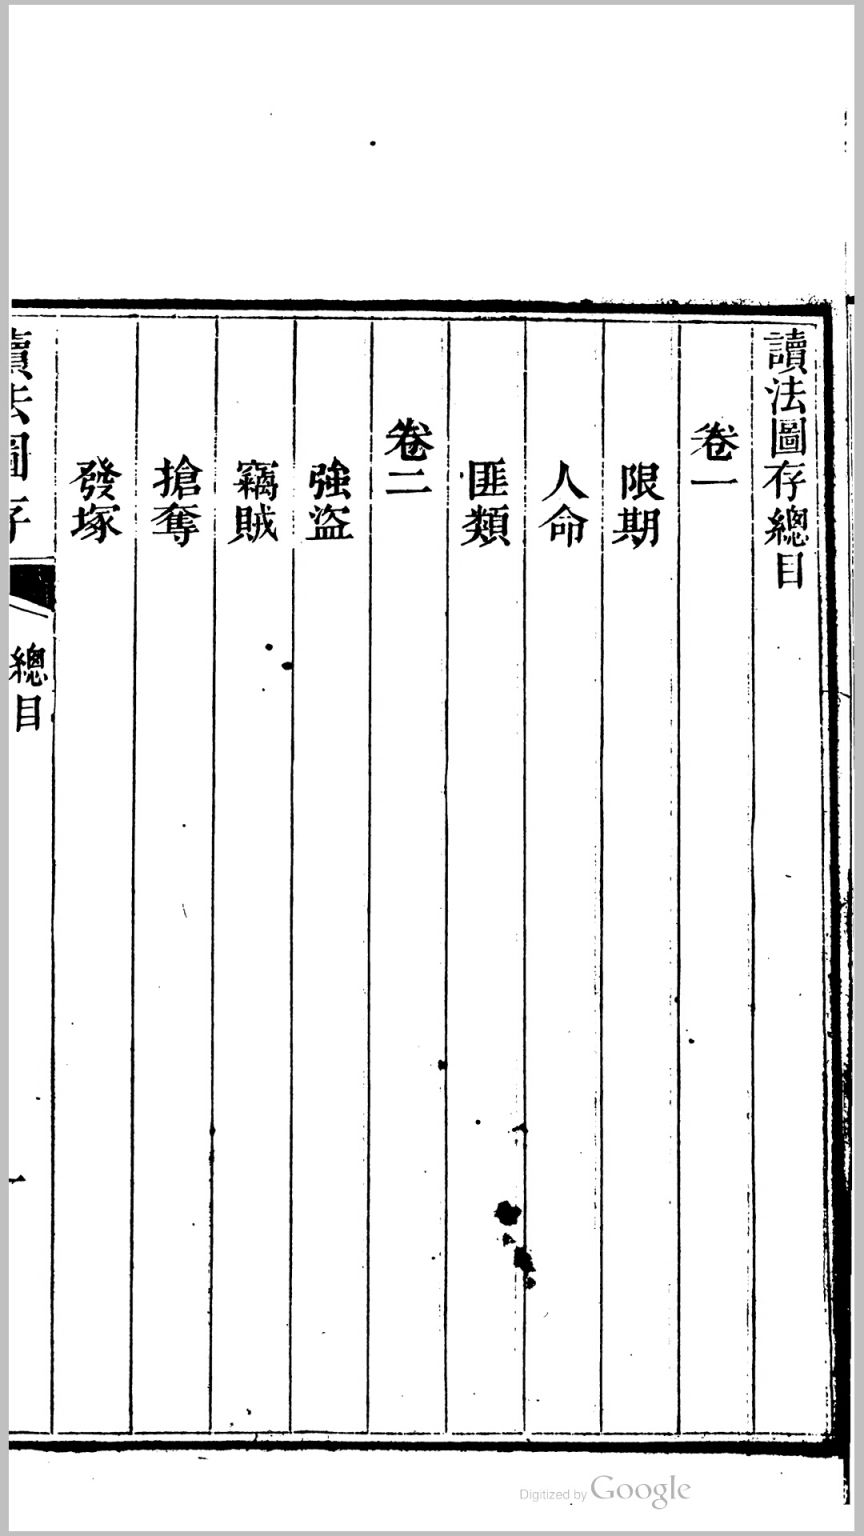 讀法圖存總目
卷一
限期
人命
匪類
卷二
強盜
竊賊
搶奪
發塚
讀法圖存
總目
一
Digitized by Google